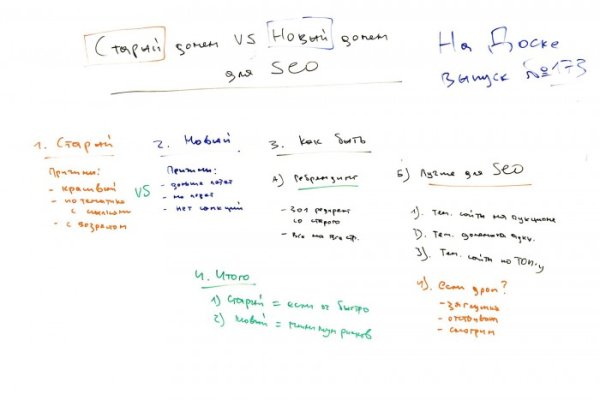 Старый домен VS Новый домен
для SEO
На Доске
Выпуск №173
1. Старый
Причины:
- красивый
- по тематике
с ссылками
- с возрастом
VS
2. Новый
Причины:
- дольше
- не
- нет санкций
3. Как быть
А) Ребрендинг
- 301 редирект
со старого
- Все на все стр.
Б) Лучше для SEO
1). Тем. сайты на аукционе
2). Тем. домены аукц.
3). Тем. сайты по ТОП-у
4). если дроп?
- загрузка
- отстаиваем
- смотрим
4. Итого
1) Старый = если оч быстро
2) Новый = минимум рисков